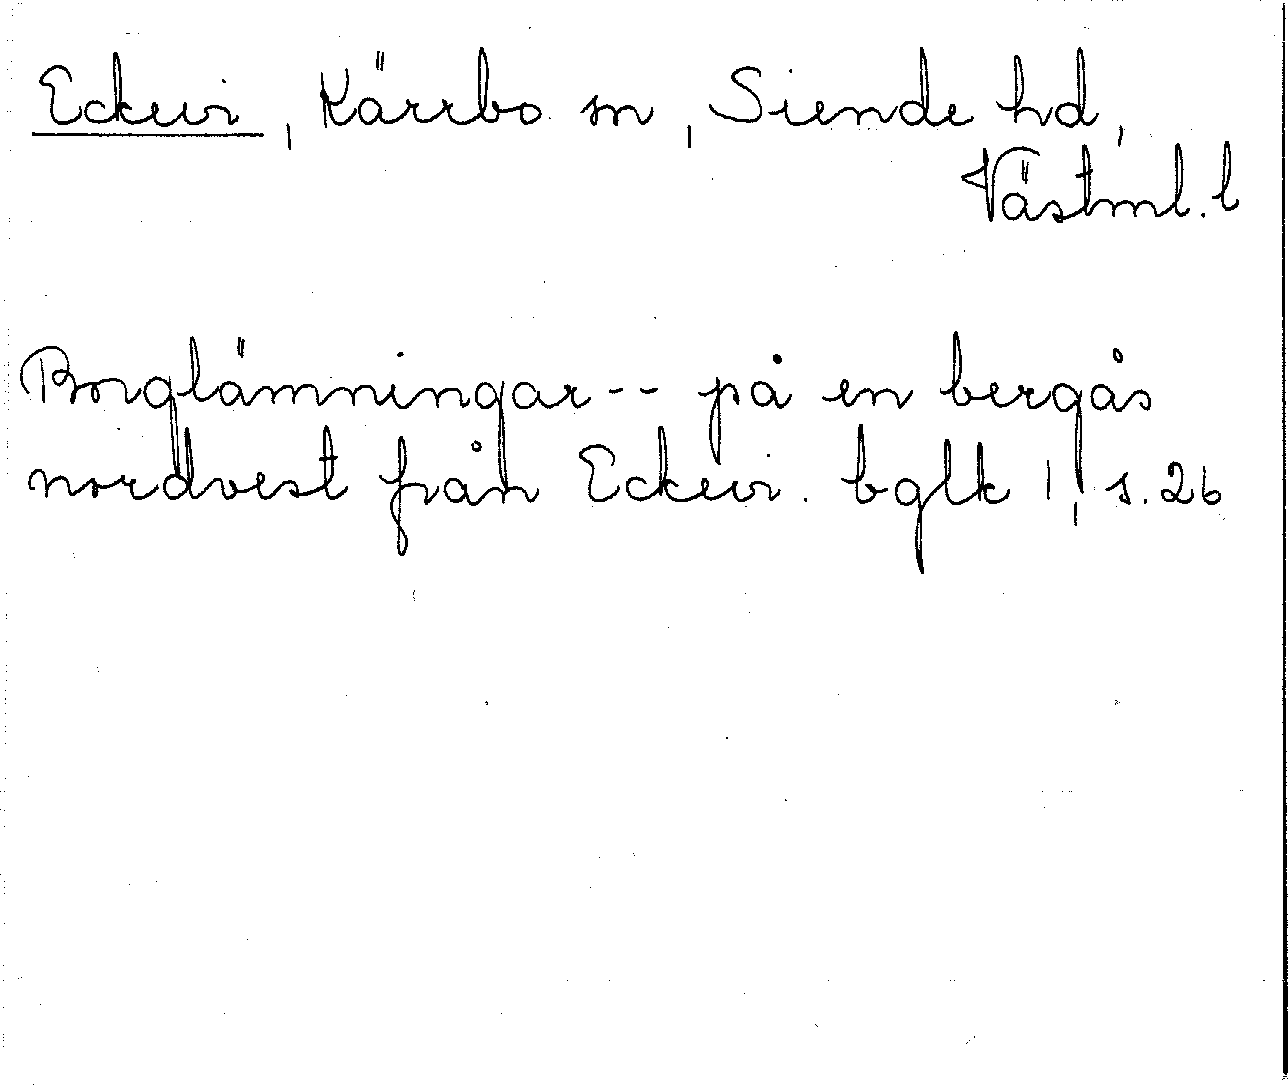 Eckevi, Kärrbo sn, Siende hd,
Västml. l
Borglämningar-- på en bergås
nordvest från Eckevi. bglk 1, s.26